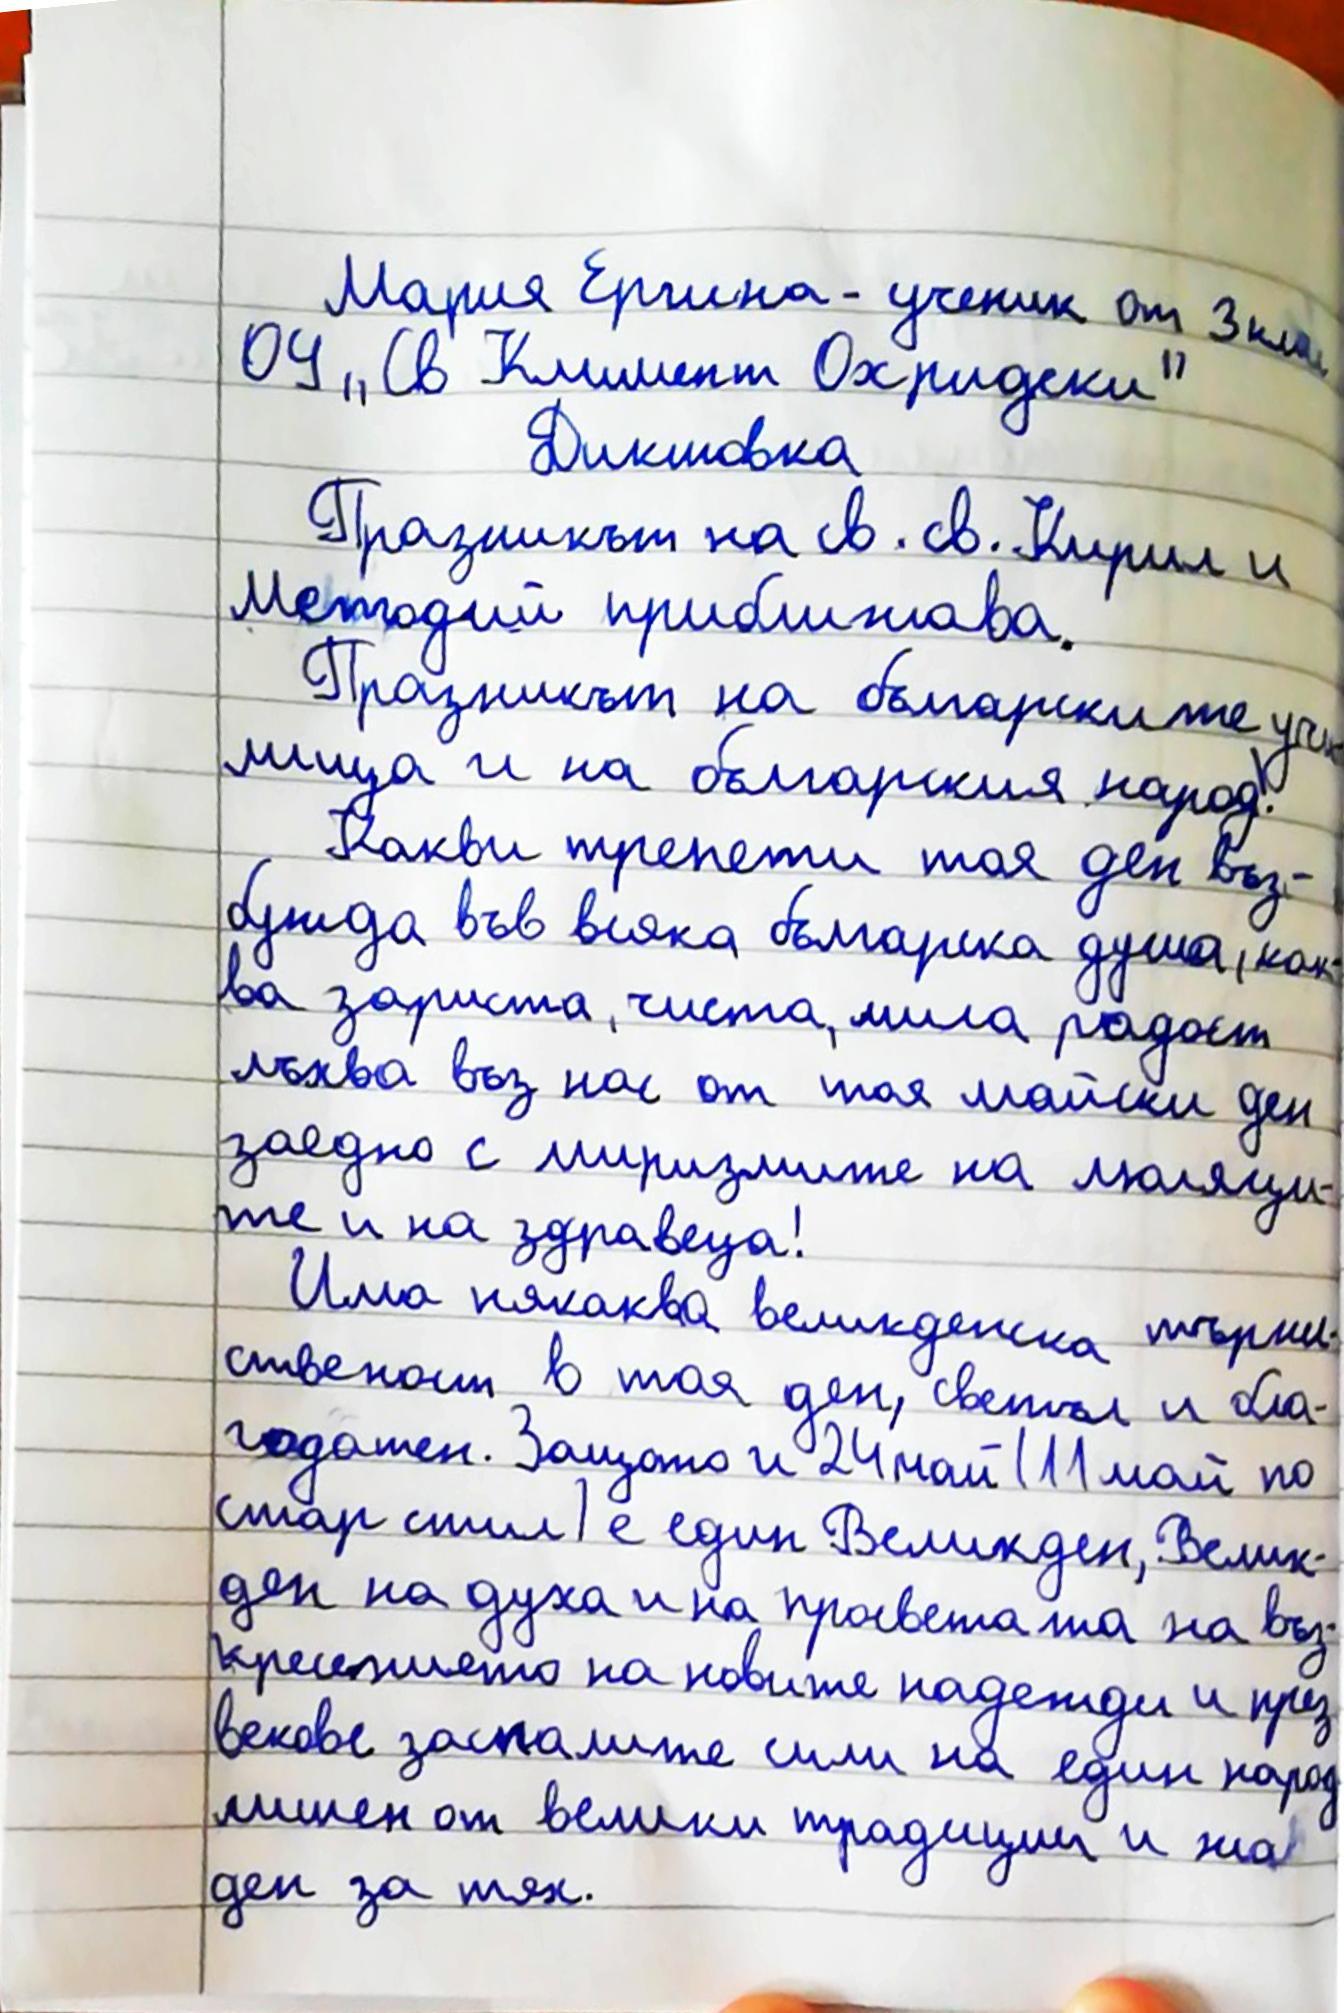 Мария Ергина - ученик от 3 клас,
ОУ „Св Климент Охридски"
Диктовка
Празникът на св. св. Кирил и
Методий приближава.
Празникът на българските учи
лища и на българския народ!
Какви трепети тоя ден въз-
бужда във всяка българска душа, как-
ва зариста, чиста, мила радост
лъхва въз нас от тоя майски ден
заедно с миризмите на люляци-
те и на здравеца!
Има някаква великденска търже-
ственост в тоя ден, светъл и бла-
годатен. Защото и 24 май (11 май по
стар стил) е един Великден, Велик-
ден на духа и на просветата на въз-
кресението на новите надежди и през
векове заспалите сили на един народ
лишен от велики традиции и жа
ден за тях.